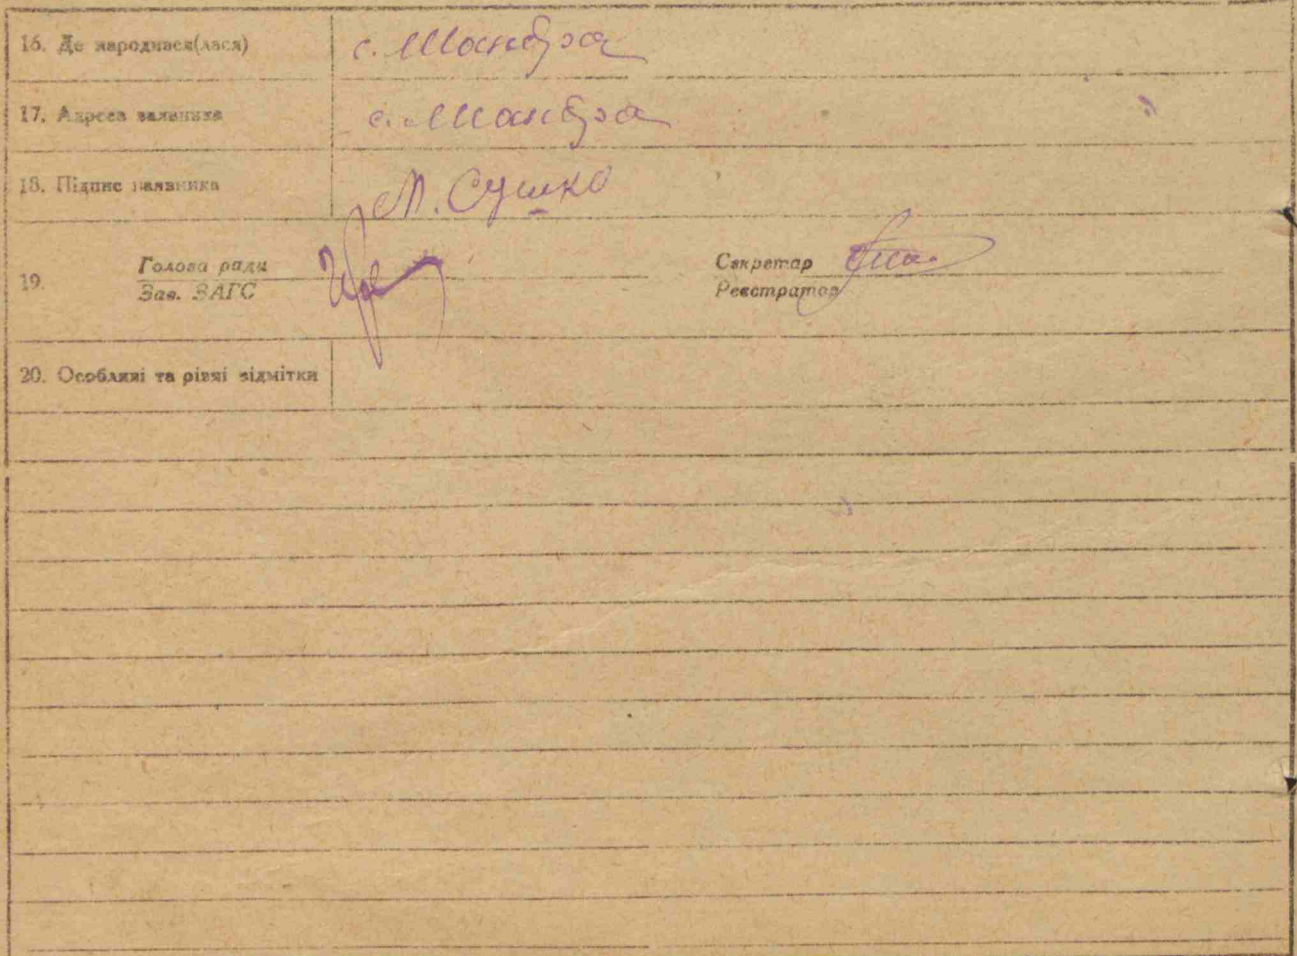 16. Де народився(лася) с. Шандра
17. Адреса заявника с. Шандра
18. Підпис заявника М. Сушко
19. Голова ради
Зав. ЗАГС
Секретар
Реєстратор
20. Особливі та різні відмітки